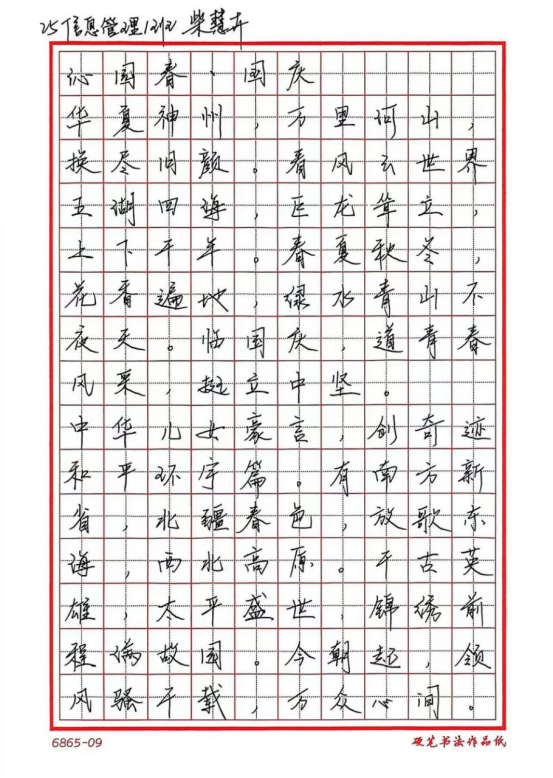 25信息管理12班 柴慧卉
沁园春·国庆
华夏神州，万里河山，
换尽旧颜。看风云世界
五湖四海，巨龙耸立，
上下千年。春夏秋冬，
花香遍地，绿水青山不
夜天。临国庆，道青春
风采，挺立中坚。
中华儿女豪言，创奇迹
和平环宇篇。有南方新
省，北疆春色，放歌东
海，西北高原。千古英
雄，太平盛世，锦绣前
程满故园。今朝起，领
风骚千载，万众心间。
6865-09 硬笔书法作品纸